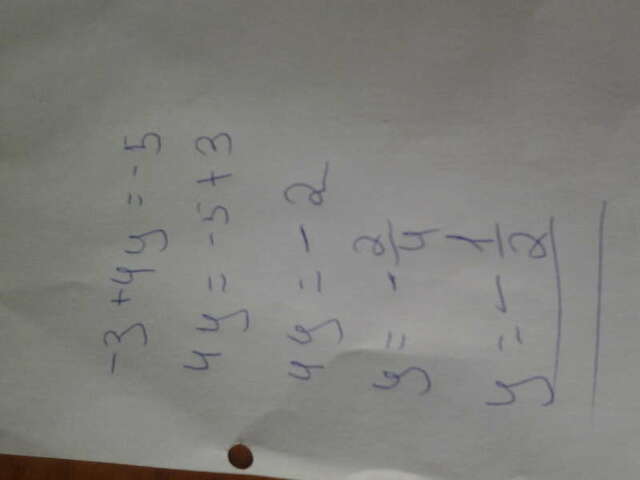 -3+4y=-5
4y=-5+3
4y=-2
y=-2/4
y=-1/2